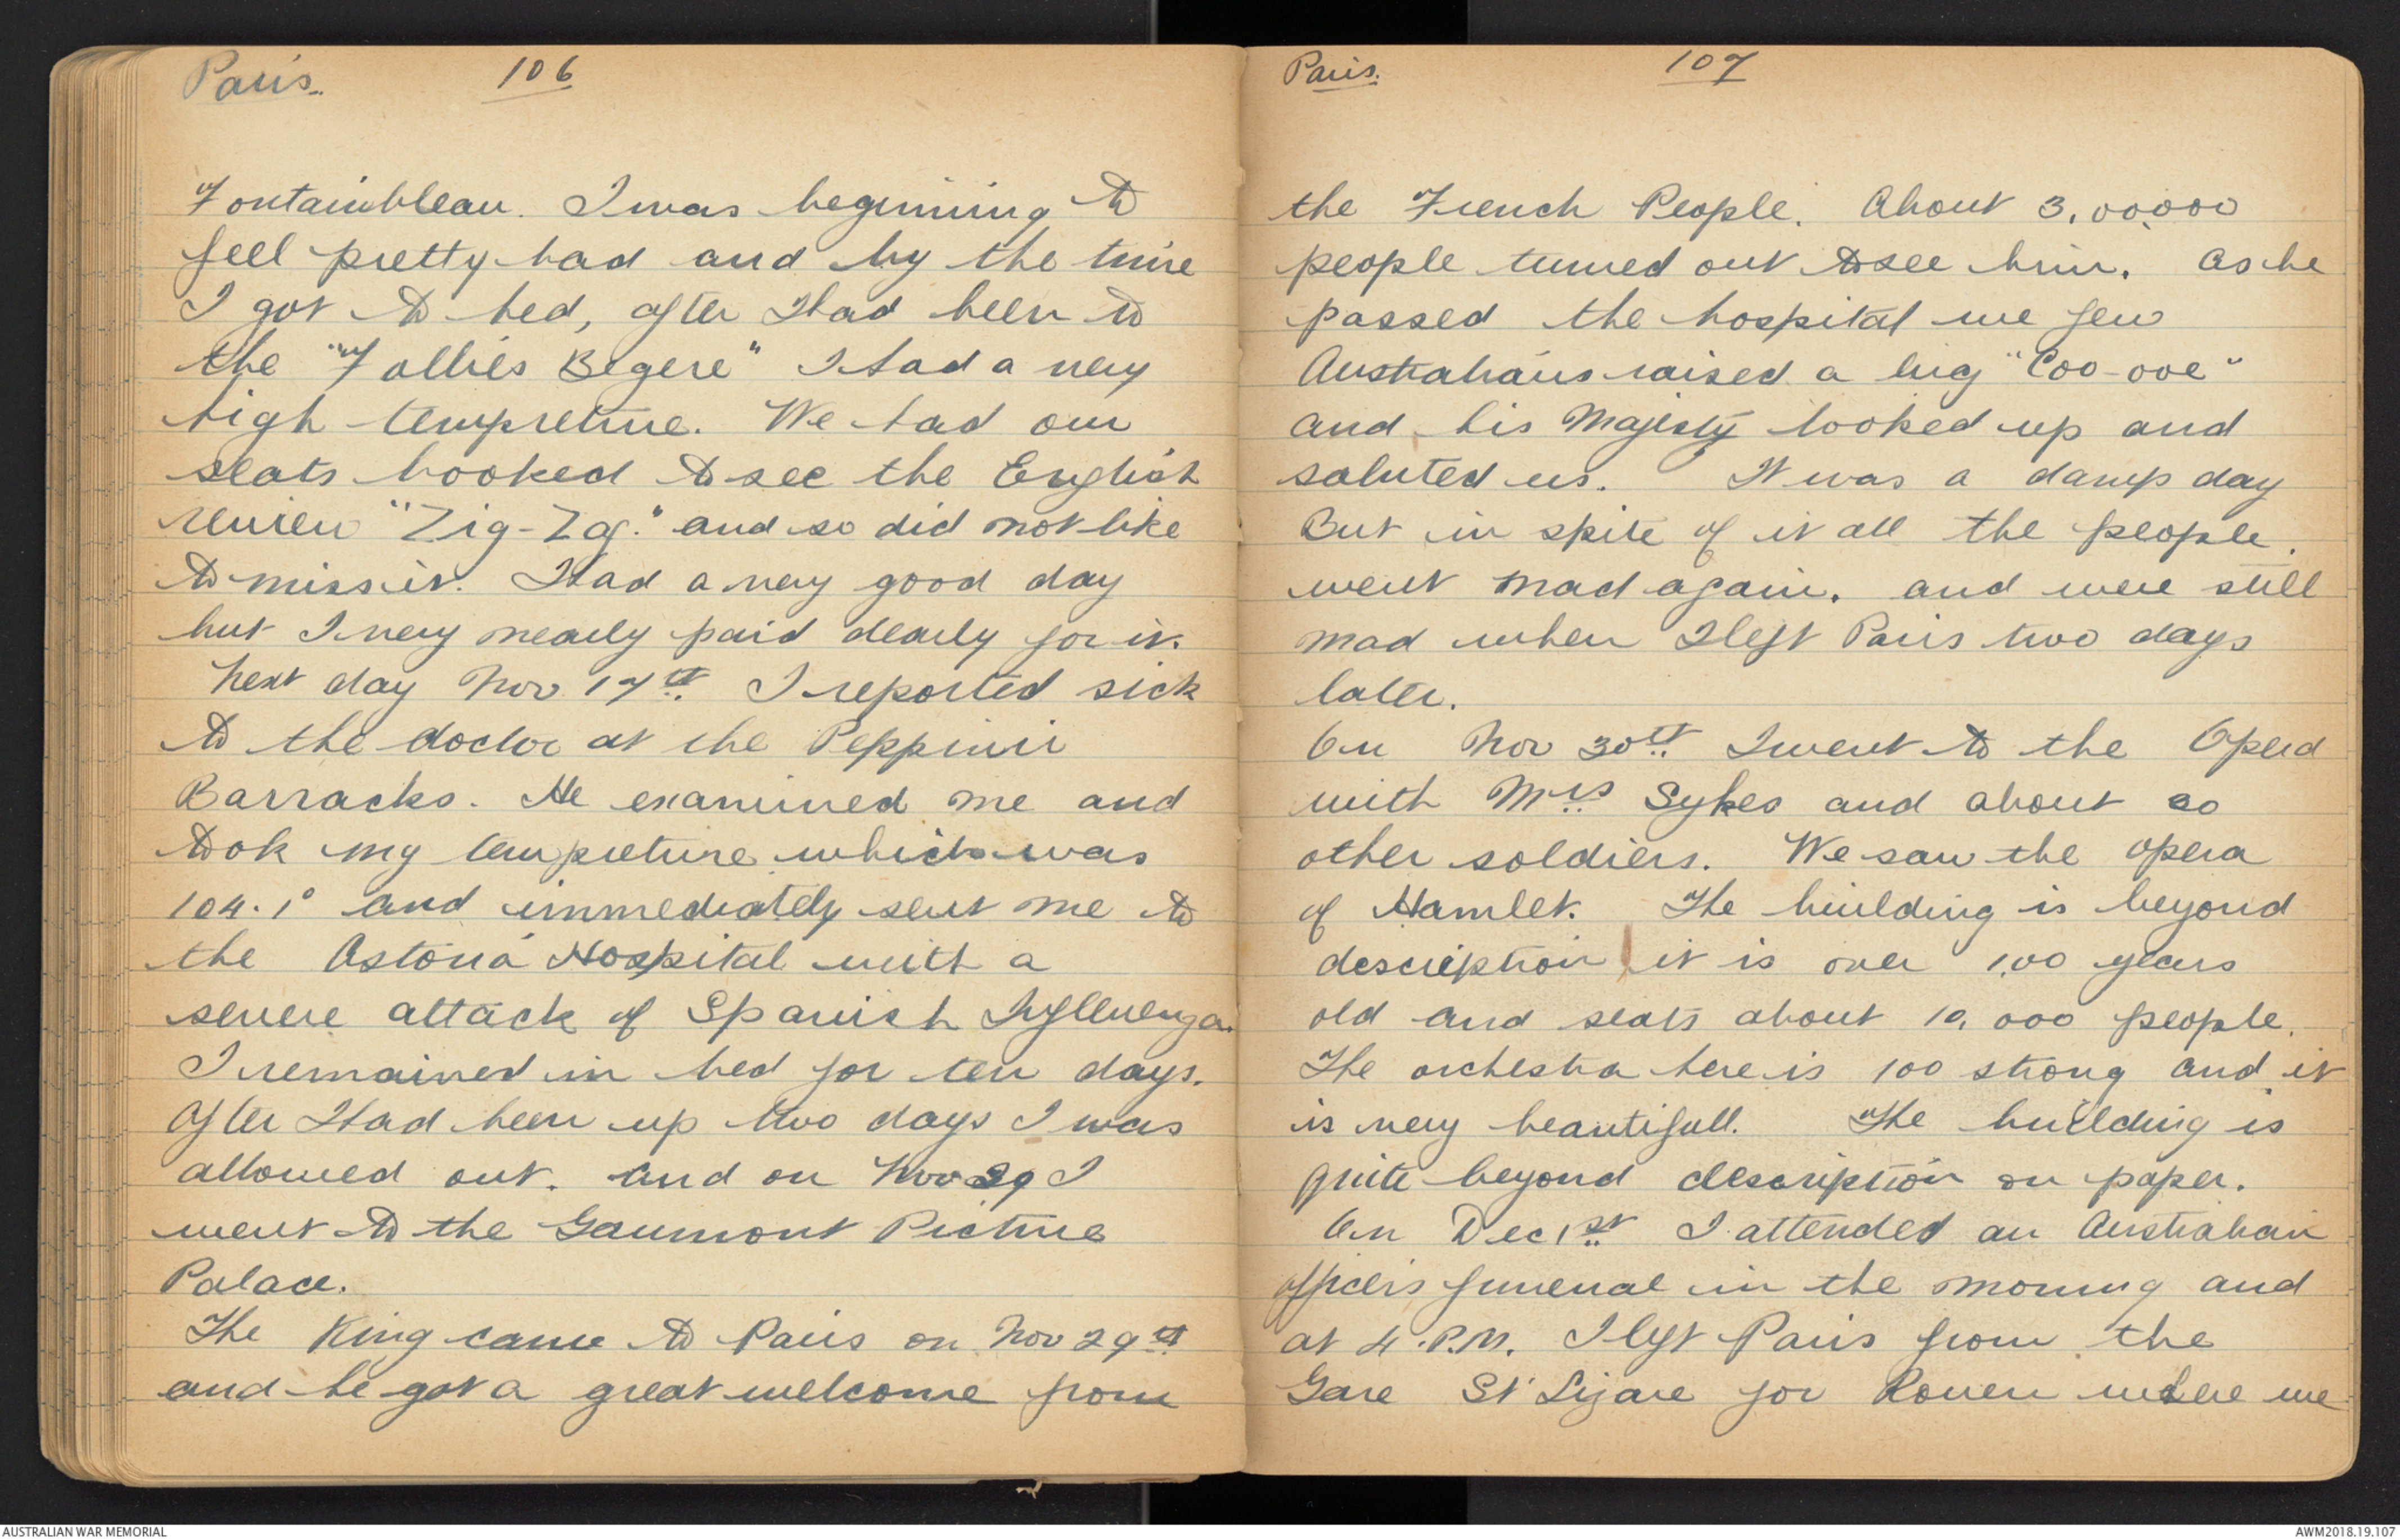 Paris. 106
Fontainbleau. I was beginning to
feel pretty bad and by the time
I got to bed, after I had been to
the "Follies Begere" I had a very
high tempreture. We had our
seats booked to see the English
review "Zig-Zag." and so did not like
to miss it. I had a very good day
but I very nearly paid dearly for it.
Next day Nov 17th. I reported sick
to the doctor at the Peppinir
Barracks. He examined me and
took my tempreture which was
104.1° and immediately sent me to
the Astoria Hospital with a
severe attack of Spanish Influenza.
I remained in bed for ten days.
After I had been up two days I was
allowed out. and on Nov 29 I
went to the Gaumont Picture
Palace.
The King came to Paris on Nov 29th
and he got a great welcome from
Paris. 107
the French People. About 3,00000
people turned out to see him. As he
passed the hospital we few
Australians raised a big "Coo-ooe"
and his Majesty looked up and
saluted us. It was a damp day
But in spite of it all the people.
went mad again. and were still
mad when I left Paris two days
later.
On Nov 30th I went to the Opera
with Mrs Sykes and about 20
other soldiers. We saw the opera
of Hamlet. The building is beyond
description it is over 100 years
old and seats about 10,000 people.
The orchestra here is 100 strong and it
is very beautifull. The building is
quite beyond description on paper.
On Dec 1st I attended an Australian
officers funeral in the morning and
at 4.P.M. I left Paris from the
Gare St Lizare for Rouen where we
AUSTRALIAN WAR MEMORIAL
AWM2018.19.107